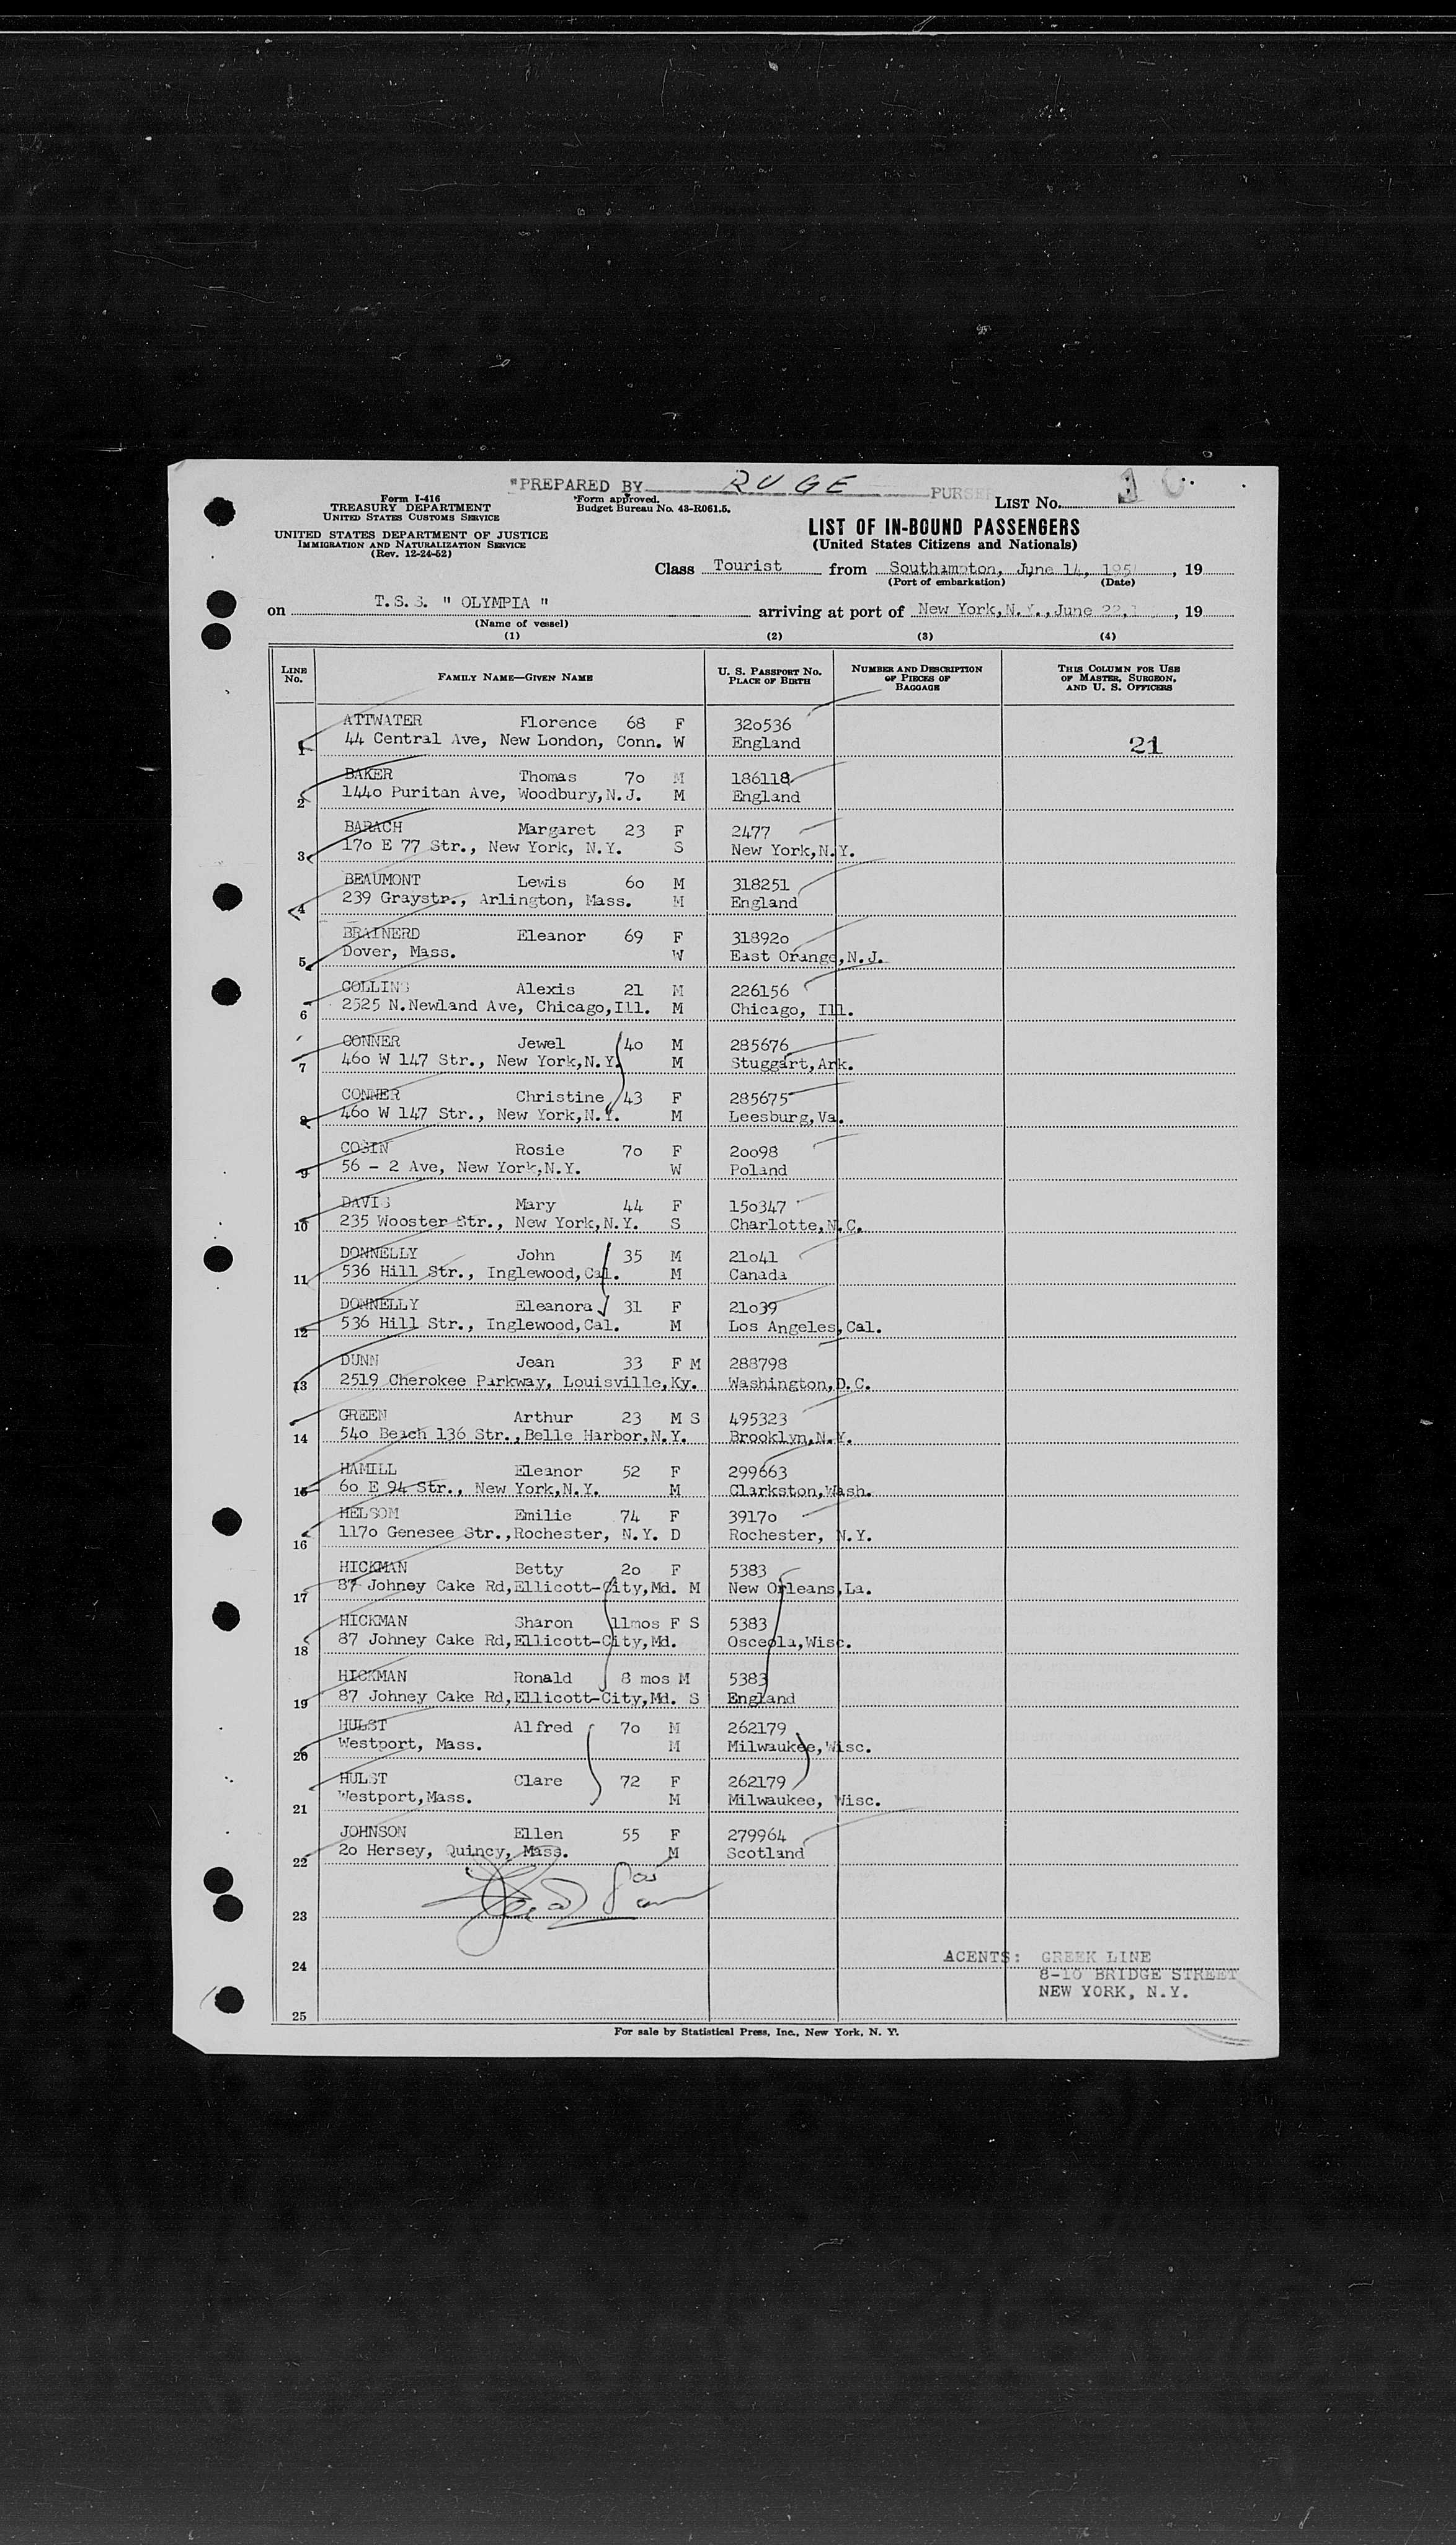 "PREPARED BY RUGE PURSER
Form I-416
TREASURY DEPARTMENT
UNITED STATES CUSTOMS SERVICE
UNITED STATES DEPARTMENT OF JUSTICE
IMMIGRATION AND NATURALIZATION SERVICE
(Rev. 12-24-52)
Form approved.
Budget Bureau No. 43-R061.5.
LIST No. 10
LIST OF IN-BOUND PASSENGERS
(United States Citizens and Nationals)
Class Tourist from Southampton, June 14, 195 , 19
(Port of embarkation) (Date)
on T.S.S. " OLYMPIA " arriving at port of New York, N.Y., June 22, 1 , 19
(Name of vessel)
(1) (2) (3) (4)
LINE No. FAMILY NAME—GIVEN NAME U. S. PASSPORT No. PLACE OF BIRTH NUMBER AND DESCRIPTION OF PIECES OF BAGGAGE THIS COLUMN FOR USE OF MASTER, SURGEON, AND U. S. OFFICERS
ATTWATER Florence 68 F 320536
1 44 Central Ave, New London, Conn. W England 21
BAKER Thomas 70 M 186118
2 1440 Puritan Ave, Woodbury, N.J. M England
BARACH Margaret 23 F 2477
3 170 E 77 Str., New York, N.Y. S New York, N.Y.
BEAUMONT Lewis 60 M 318251
4 239 Graystr., Arlington, Mass. M England
BRAINERD Eleanor 69 F 318920
5 Dover, Mass. W East Orange, N.J.
COLLINS Alexis 21 M 226156
6 2525 N.Newland Ave, Chicago, Ill. M Chicago, Ill.
CONNER Jewel 40 M 285676
7 460 W 147 Str., New York, N.Y. M Stuggart, Ark.
CONNER Christine 43 F 285675
8 460 W 147 Str., New York, N.Y. M Leesburg, Va.
COSIN Rosie 70 F 20098
9 56 - 2 Ave, New York, N.Y. W Poland
DAVIS Mary 44 F 150347
10 235 Wooster Str., New York, N.Y. S Charlotte, N.C.
DONNELLY John 35 M 21041
11 536 Hill Str., Inglewood, Cal. M Canada
DONNELLY Eleanora 31 F 21039
12 536 Hill Str., Inglewood, Cal. M Los Angeles, Cal.
DUNN Jean 33 F M 288798
13 2519 Cherokee Parkway, Louisville, Ky. Washington, D.C.
GREEN Arthur 23 M S 495323
14 540 Beach 136 Str., Belle Harbor, N.Y. Brooklyn, N.Y.
HAMILL Eleanor 52 F 299663
15 60 E 94 Str., New York, N.Y. M Clarkston, Wash.
HELSOM Emilie 74 F 39170
16 1170 Genesee Str., Rochester, N.Y. D Rochester, N.Y.
HICKMAN Betty 20 F 5383
17 87 Johney Cake Rd, Ellicott-City, Md. M New Orleans, La.
HICKMAN Sharon 11mos F S 5383
18 87 Johney Cake Rd, Ellicott-City, Md. Osceola, Wisc.
HICKMAN Ronald 8 mos M 5383
19 87 Johney Cake Rd, Ellicott-City, Md. S England
HULST Alfred 70 M 262179
20 Westport, Mass. M Milwaukee, Wisc.
HULST Clare 72 F 262179
21 Westport, Mass. M Milwaukee, Wisc.
JOHNSON Ellen 55 F 279964
22 20 Hersey, Quincy, Mass. M Scotland
23
24
25
AGENTS: GREEK LINE
8-10 BRIDGE STREET
NEW YORK, N.Y.
For sale by Statistical Press, Inc., New York, N. Y.